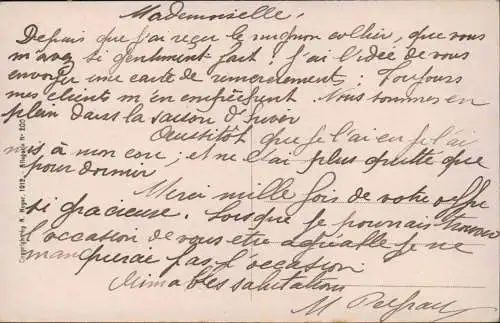 Mademoiselle!
Depuis que j'ai reçu le mignon collier, que vous
m'avez si gentiment fait; j'ai l'idée de vous
envoyer une carte de remerciements; Toujours
mes clients m'en empêchent. Nous sommes en
plein dans la saison d'hiver
Aussitôt que je l'ai eu je l'ai
mis à mon cou, et ne l'ai plus quitté que
pour dormir
Merci mille fois de votre offre
si gracieuse. Lorsque je pourrais trouver
l'occasion de vous être agréable je ne
manquerai pas l'occasion
Aimables salutations
M
Copyright by R. Hager, 1912. - Allegorie Nr 200